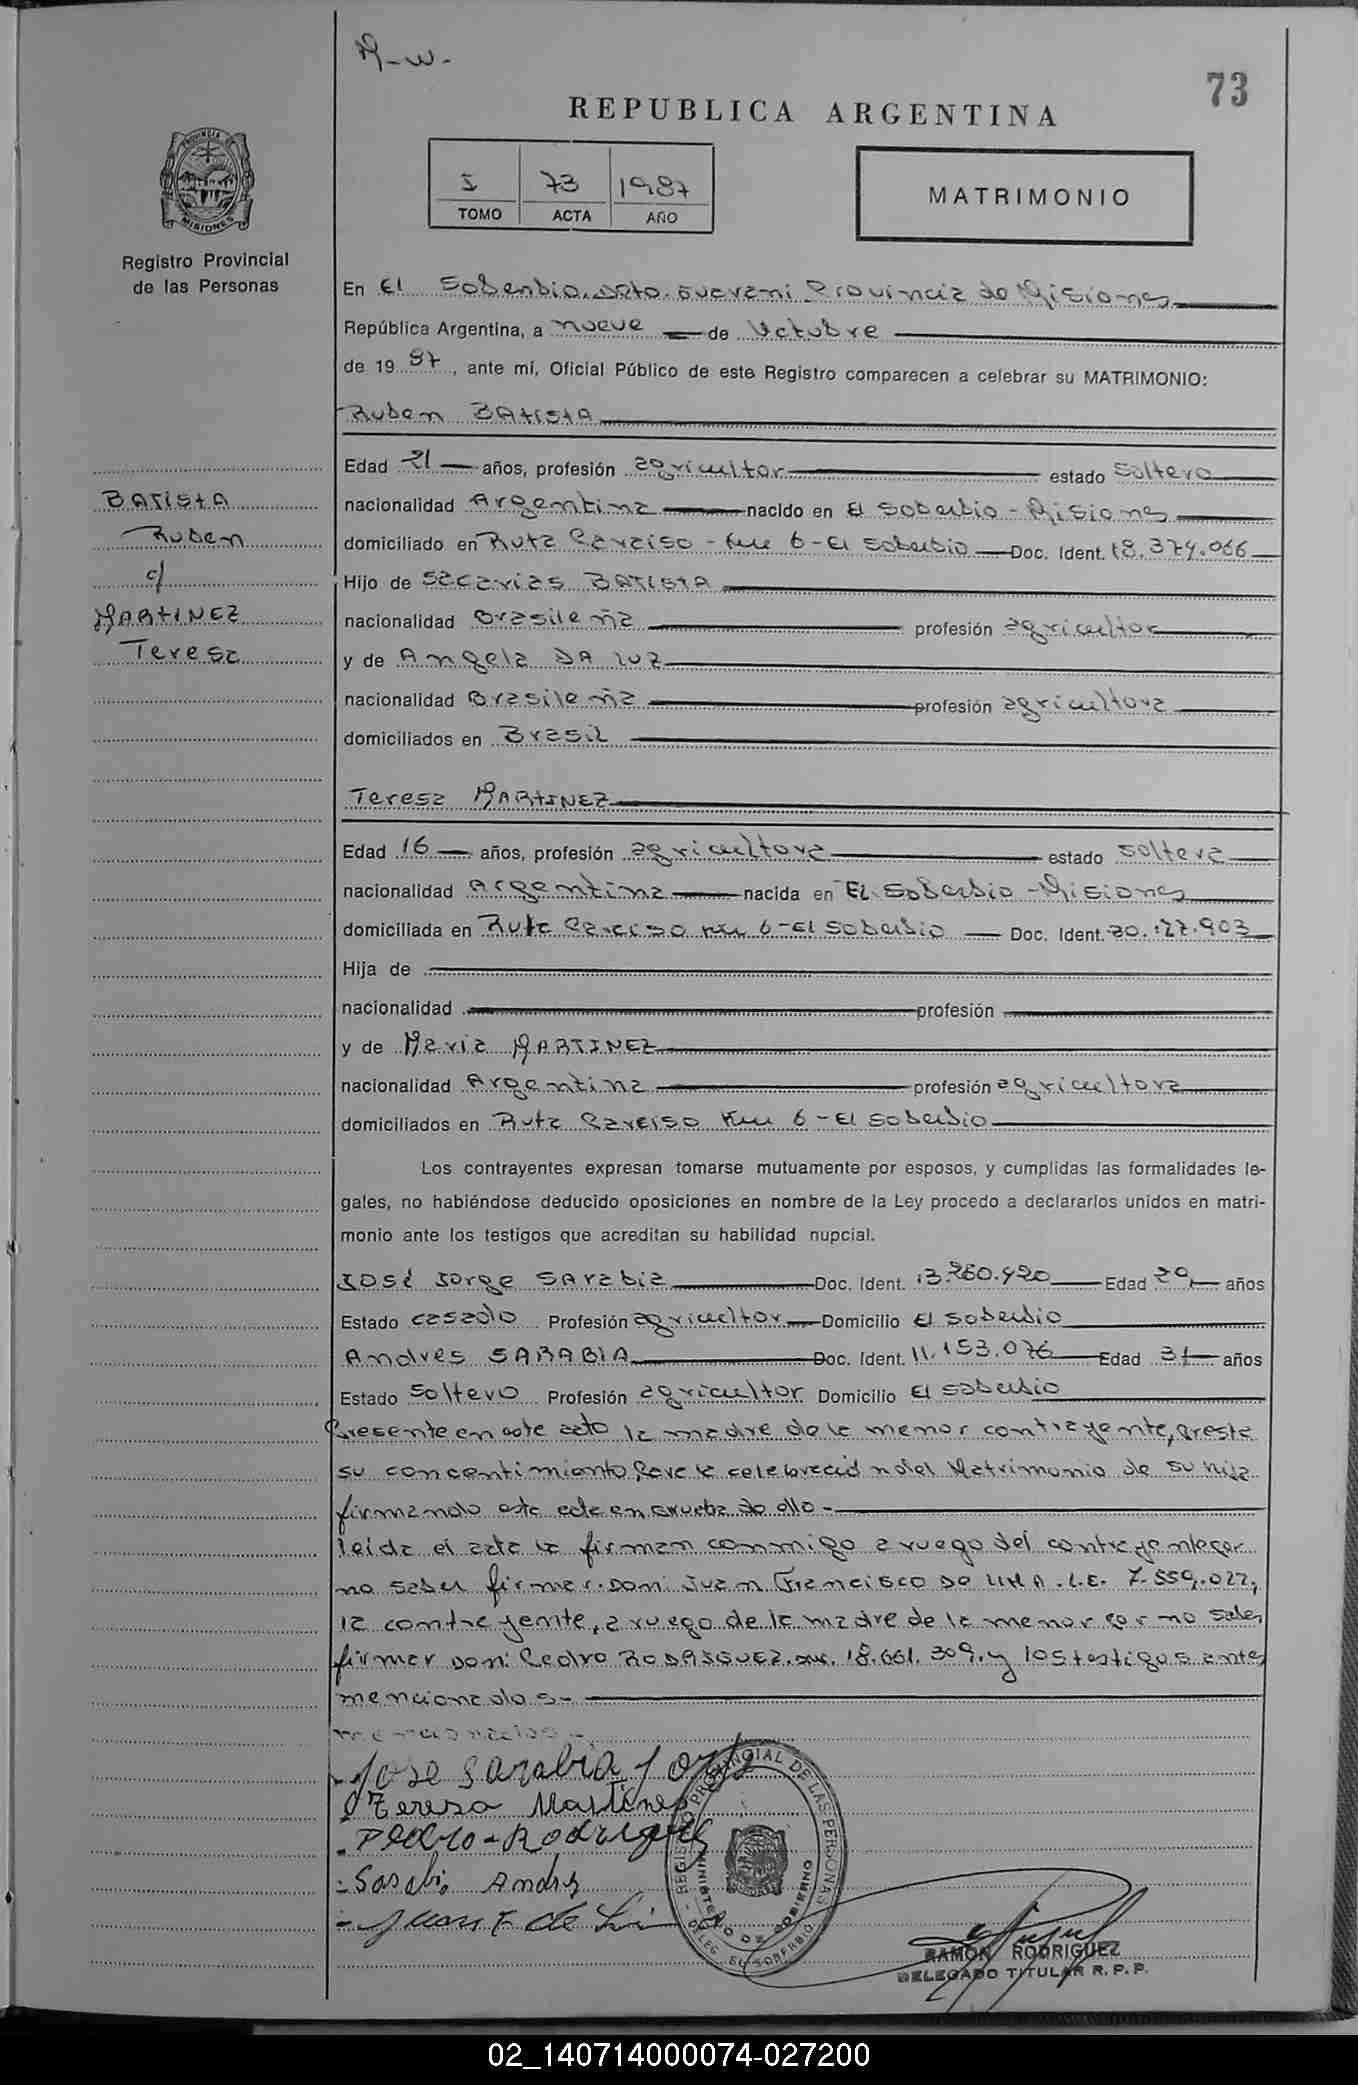 M-w-
73
REPUBLICA ARGENTINA
I 73 1987
TOMO ACTA AÑO
MATRIMONIO
PROVINCIA DE MISIONES
Registro Provincial
de las Personas
En El Soberbio, Dpto. Guarani Provincia de Misiones
República Argentina, a nueve de Octubre
de 19 87, ante mí, Oficial Público de este Registro comparecen a celebrar su MATRIMONIO:
Ruben BATISTA
Edad 21 años, profesión agricultor estado soltero
nacionalidad Argentina nacido en El Soberbio - Misiones
domiciliado en Ruta Paraiso - Km 6 - El Soberbio Doc. Ident. 18.374.066
Hijo de Sacarias BATISTA
nacionalidad Brasileña profesión agricultor
y de Angela DA LUZ
nacionalidad Brasileña profesión agricultora
domiciliados en Brasil
BATISTA
Ruben
c/
MARTINEZ
Teresa
Teresa MARTINEZ
Edad 16 años, profesión agricultora estado soltera
nacionalidad Argentina nacida en El Soberbio - Misiones
domiciliada en Ruta Paraiso Km 6 - El Soberbio Doc. Ident. 20.127.903
Hija de
nacionalidad profesión
y de Maria MARTINEZ
nacionalidad Argentina profesión agricultora
domiciliados en Ruta Paraiso Km 6 - El Soberbio
Los contrayentes expresan tomarse mutuamente por esposos, y cumplidas las formalidades le-
gales, no habiéndose deducido oposiciones en nombre de la Ley procedo a declararlos unidos en matri-
monio ante los testigos que acreditan su habilidad nupcial.
José Jorge SARABIA Doc. Ident. 13.260.420 Edad 29 años
Estado casado Profesión agricultor Domicilio El Soberbio
Andres SARABIA Doc. Ident. 11.153.076 Edad 31 años
Estado Soltero Profesión agricultor Domicilio El Soberbio
Presente en este acto la madre de la menor contrayente, presta
su concentimiento para la celebración del Matrimonio de su hija
firmando esta acta en prueba de ello -
leida el acta la firman conmigo a ruego del contrayente por
no saber firmar. Don: Juan Francisco DO LIMA. L.E. 7.550.022,
la contrayente, a ruego de la madre de la menor por no saber
firmar Don: Pedro RODRIGUEZ. 18.661.309. y los testigos antes
mencionados -
mencionados -
- Jose Sarabia Jorge
- Teresa Martinez
- Pedro - Rodriguez
- Sarabia Andres
- Juan F. de Lima
REGISTRO PROVINCIAL DE LAS PERSONAS
MINISTERIO DE GOBIERNO
DELEG. EL SOBERBIO
RAMON RODRIGUEZ
DELEGADO TITULAR R. P. P.
02_140714000074-027200